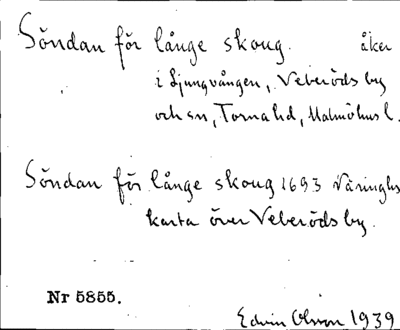 Söndan för långe skoug. åker
i Ljungvången, Veberöds by
och sn, Torna hd, Malmöhus l.
Söndan för långe skoug 1693 Väringhs
karta över Veberöds by.
Nr 5855.
Edvin Olsson 1939